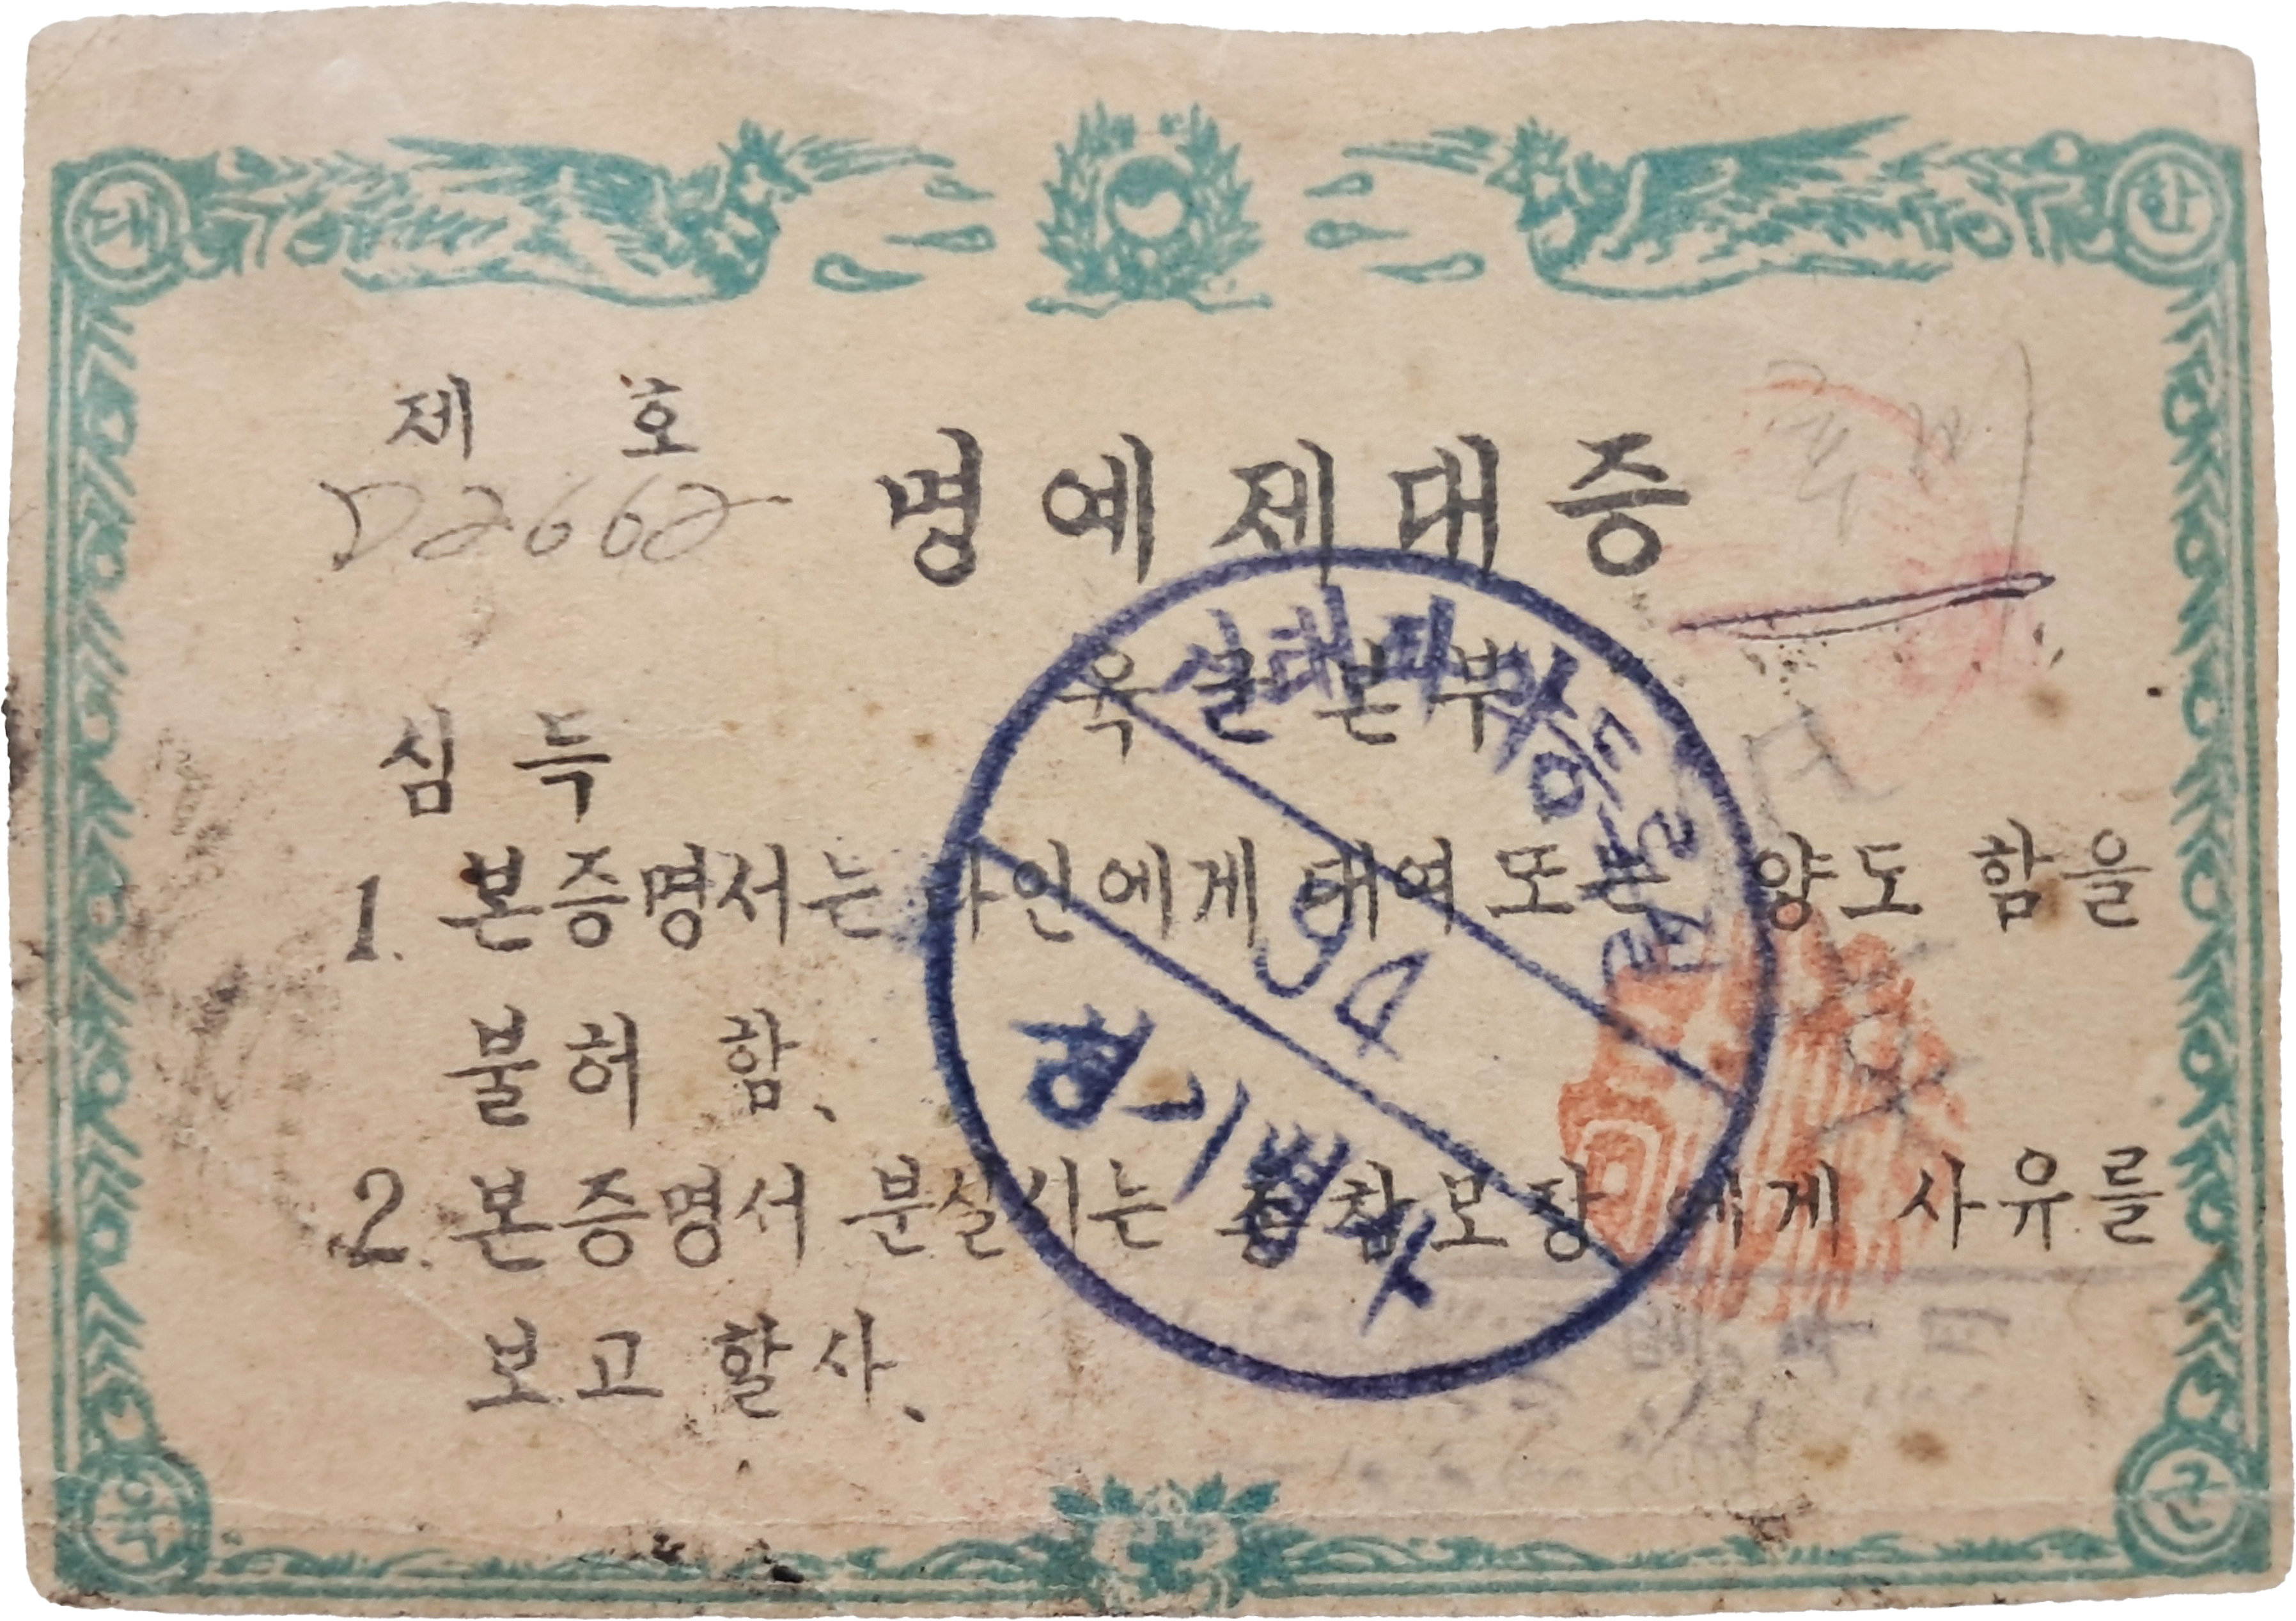 대 한
제 호
D2662
명예제대증
육군본부
심득
1. 본증명서는 타인에게 대여 또는 양도 함을
불허 함.
2. 본증명서 분실시는 총참모장 에게 사유를
보고 할사.
육 군